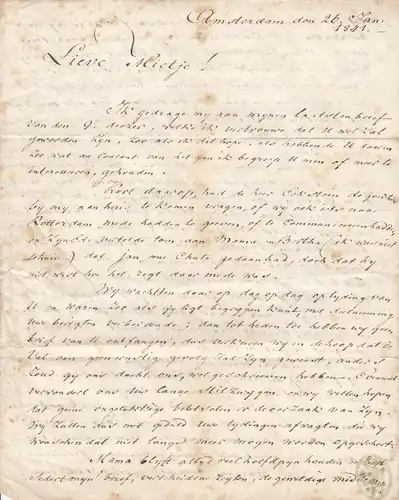 Amsterdam den 26 Jan.
1841.
Lieve Mietje!
Ik gedrage my aan mynen laatsten brief
van den 9 dezer, welke ik vertrouwe dat U wel zal
geworden zyn, zoo als ik dit hope, als hebbende U daarin
zoo wat au courant van het geen ik begreep U min of meer te
interesseren, gehouden.
Kort daarop, had de heer Eckstein de goedheid
by my aan huis te komen vragen, of wy ook iets naar
Rotterdam mede hadden te geeven, of te Communiceeren hadden
en ZynEd. vertelde toen aan Mama en Bertha (ik was niet
thuis) dat Jan eene Chute gedaan had, doch dat hy
niet wist hoe het regt daar mede was.
Wy wachtten daar op dag op dag op tyding van
U en waren zoo als gy ligt begrypen kunt, met deelneming
Uwe berigten verbeidende; dan tot heden toe hebben wy geen
brief van U ontfangen, dus verkeeren wy in de hoop dat de
val van geen ernstig gevolg zal zyn geweest, anders
zoud gy ons dacht ons, wel geschreeven hebben. Evenwel
verwonderd ons Uw lange stilzwygen en wy willen hopen
dat geene ongelukkige beletselen er de oorzaak van zyn.
Wy zullen dus met geduld Uwe tydingen afwagten die wy
wenschen dat niet lange meer mogen worden opgeschort.
Mama blyft altyd veel hoofdpyn houden en
Sedert myn brief, verscheidene